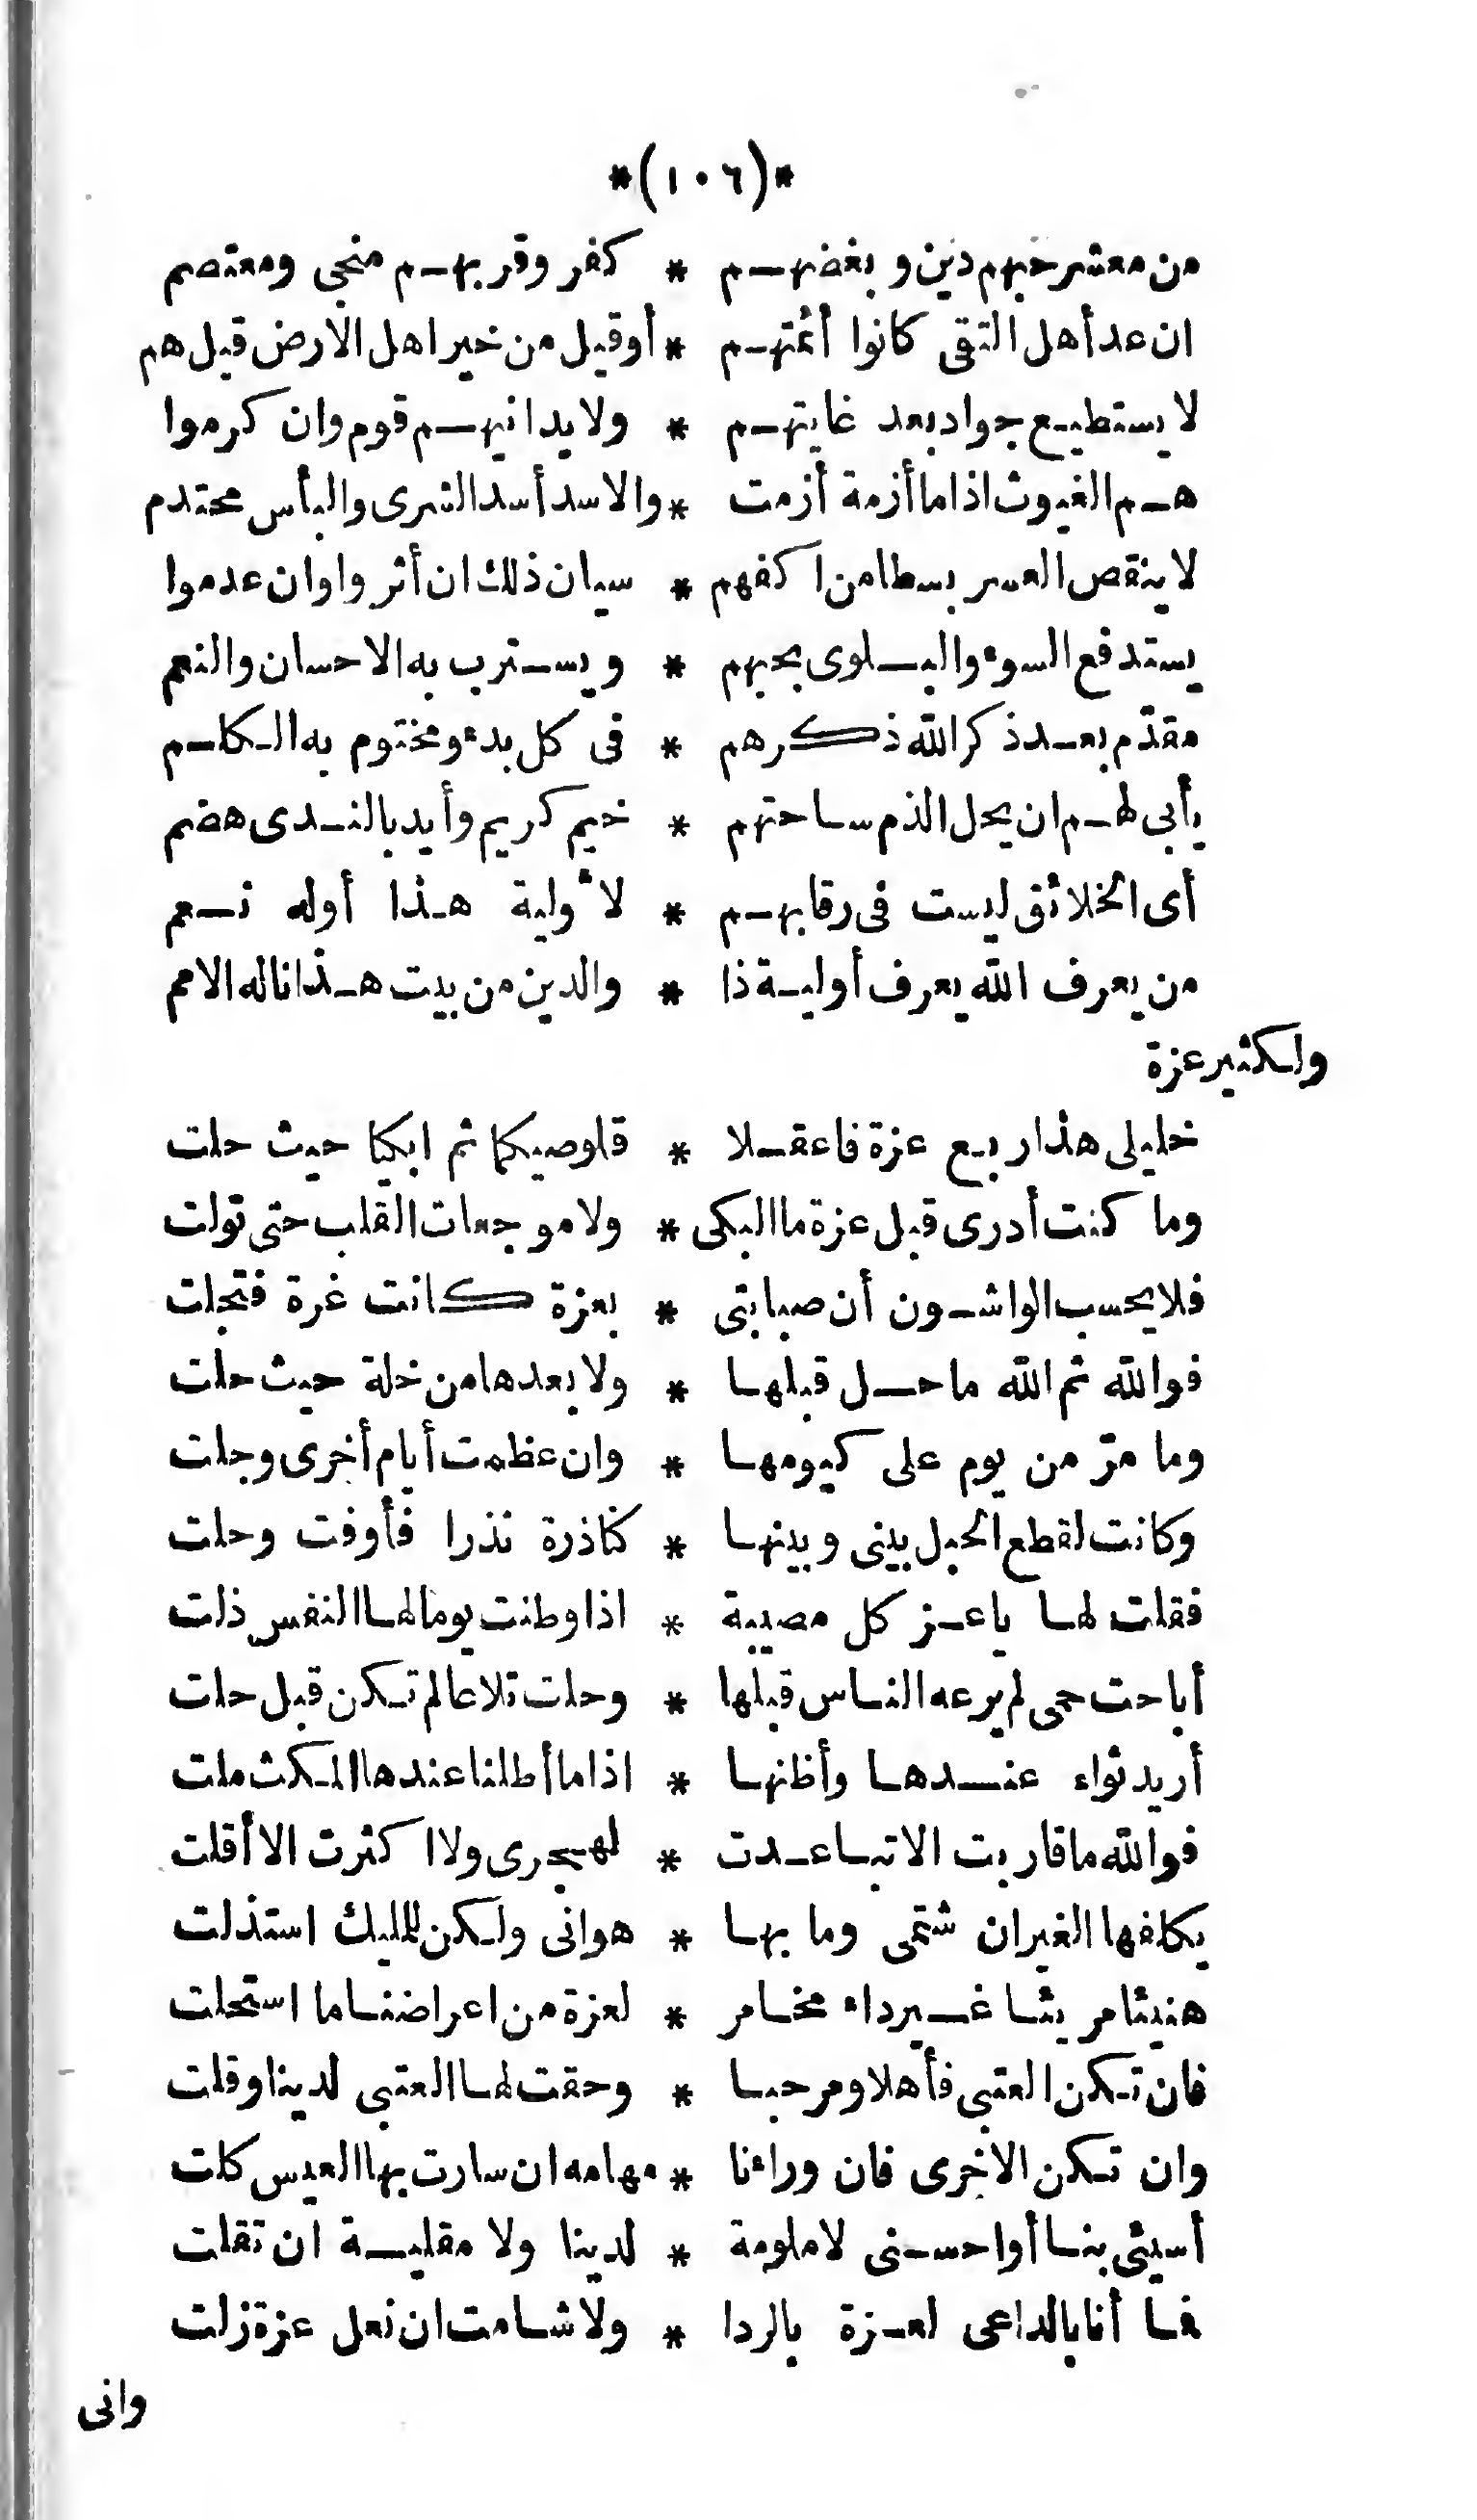 *(١٠٦)*
من معشر حبهم دين وبغضهم * كفر وقربهم منجى ومعتصم
ان عد أهل التقى كانوا أئمتهم * أو قيل من خير اهل الارض قيل هم
لا يستطيع جواد بعد غايتهم * ولا يدانيهم قوم وان كرموا
هم الغيوث اذا ما أزمة أزمت * والاسد أسد الشرى والبأس محتدم
لا ينقص العسر بسطا من اكفهم * سيان ذلك ان أثروا وان عدموا
يستدفع السوء والبلوى بحبهم * ويسترب به الاحسان والنعم
مقدّم بعد ذكر الله ذكرهم * فى كل بدء ومختوم به الكلم
يأبى لهم ان يحل الذم ساحتهم * خيم كريم وأيد بالندى هضم
أى الخلائق ليست فى رقابهم * لأولية هذا أوله نعم
من يعرف الله يعرف أولية ذا * والدين من بيت هذا ناله الامم
ولكثير عزة
خليلى هذا ربع عزة فاعقلا * قلوصيكما ثم ابكيا حيث حلت
وما كنت أدرى قبل عزة ما البكى * ولا موجعات القلب حتى تولت
فلا يحسب الواشون أن صبابتى * بعزة كانت غرة فتجلت
فوالله ثم الله ما حل قبلها * ولا بعدها من خلة حيث حلت
وما مرّ من يوم على كيومها * وان عظمت أيام أخرى وجلت
وكانت لقطع الحبل بينى وبينها * كناذرة نذرا فأوفت وحلت
فقلت لها ياعز كل مصيبة * اذا وطنت يوما لها النفس ذلت
أباحت حمى لم يرعه الناس قبلها * وحلت تلاعا لم تكن قبل حلت
أريد ثواء عندها وأظنها * اذا ما أطلنا عندها المكث ملت
فوالله ما قاربت الا تباعدت * لهجرى ولا اكثرت الا أقلت
يكلفها الغيران شتمى وما بها * هوانى ولكن للمليك استذلت
هنيئا مريئا غير داء مخامر * لعزة من اعراضنا ما استحلت
فان تكن العتبى فأهلا ومرحبا * وحقت لها العتبى لدينا وقلت
وان تكن الاخرى فان وراءنا * مهامه ان سارت بها العيس كلت
أسيئى بنا أو احسنى لا ملومة * لدينا ولا مقلية ان تقلت
فما أنا بالداعى لعزة بالردا * ولا شامت ان نعل عزة زلت
وانى